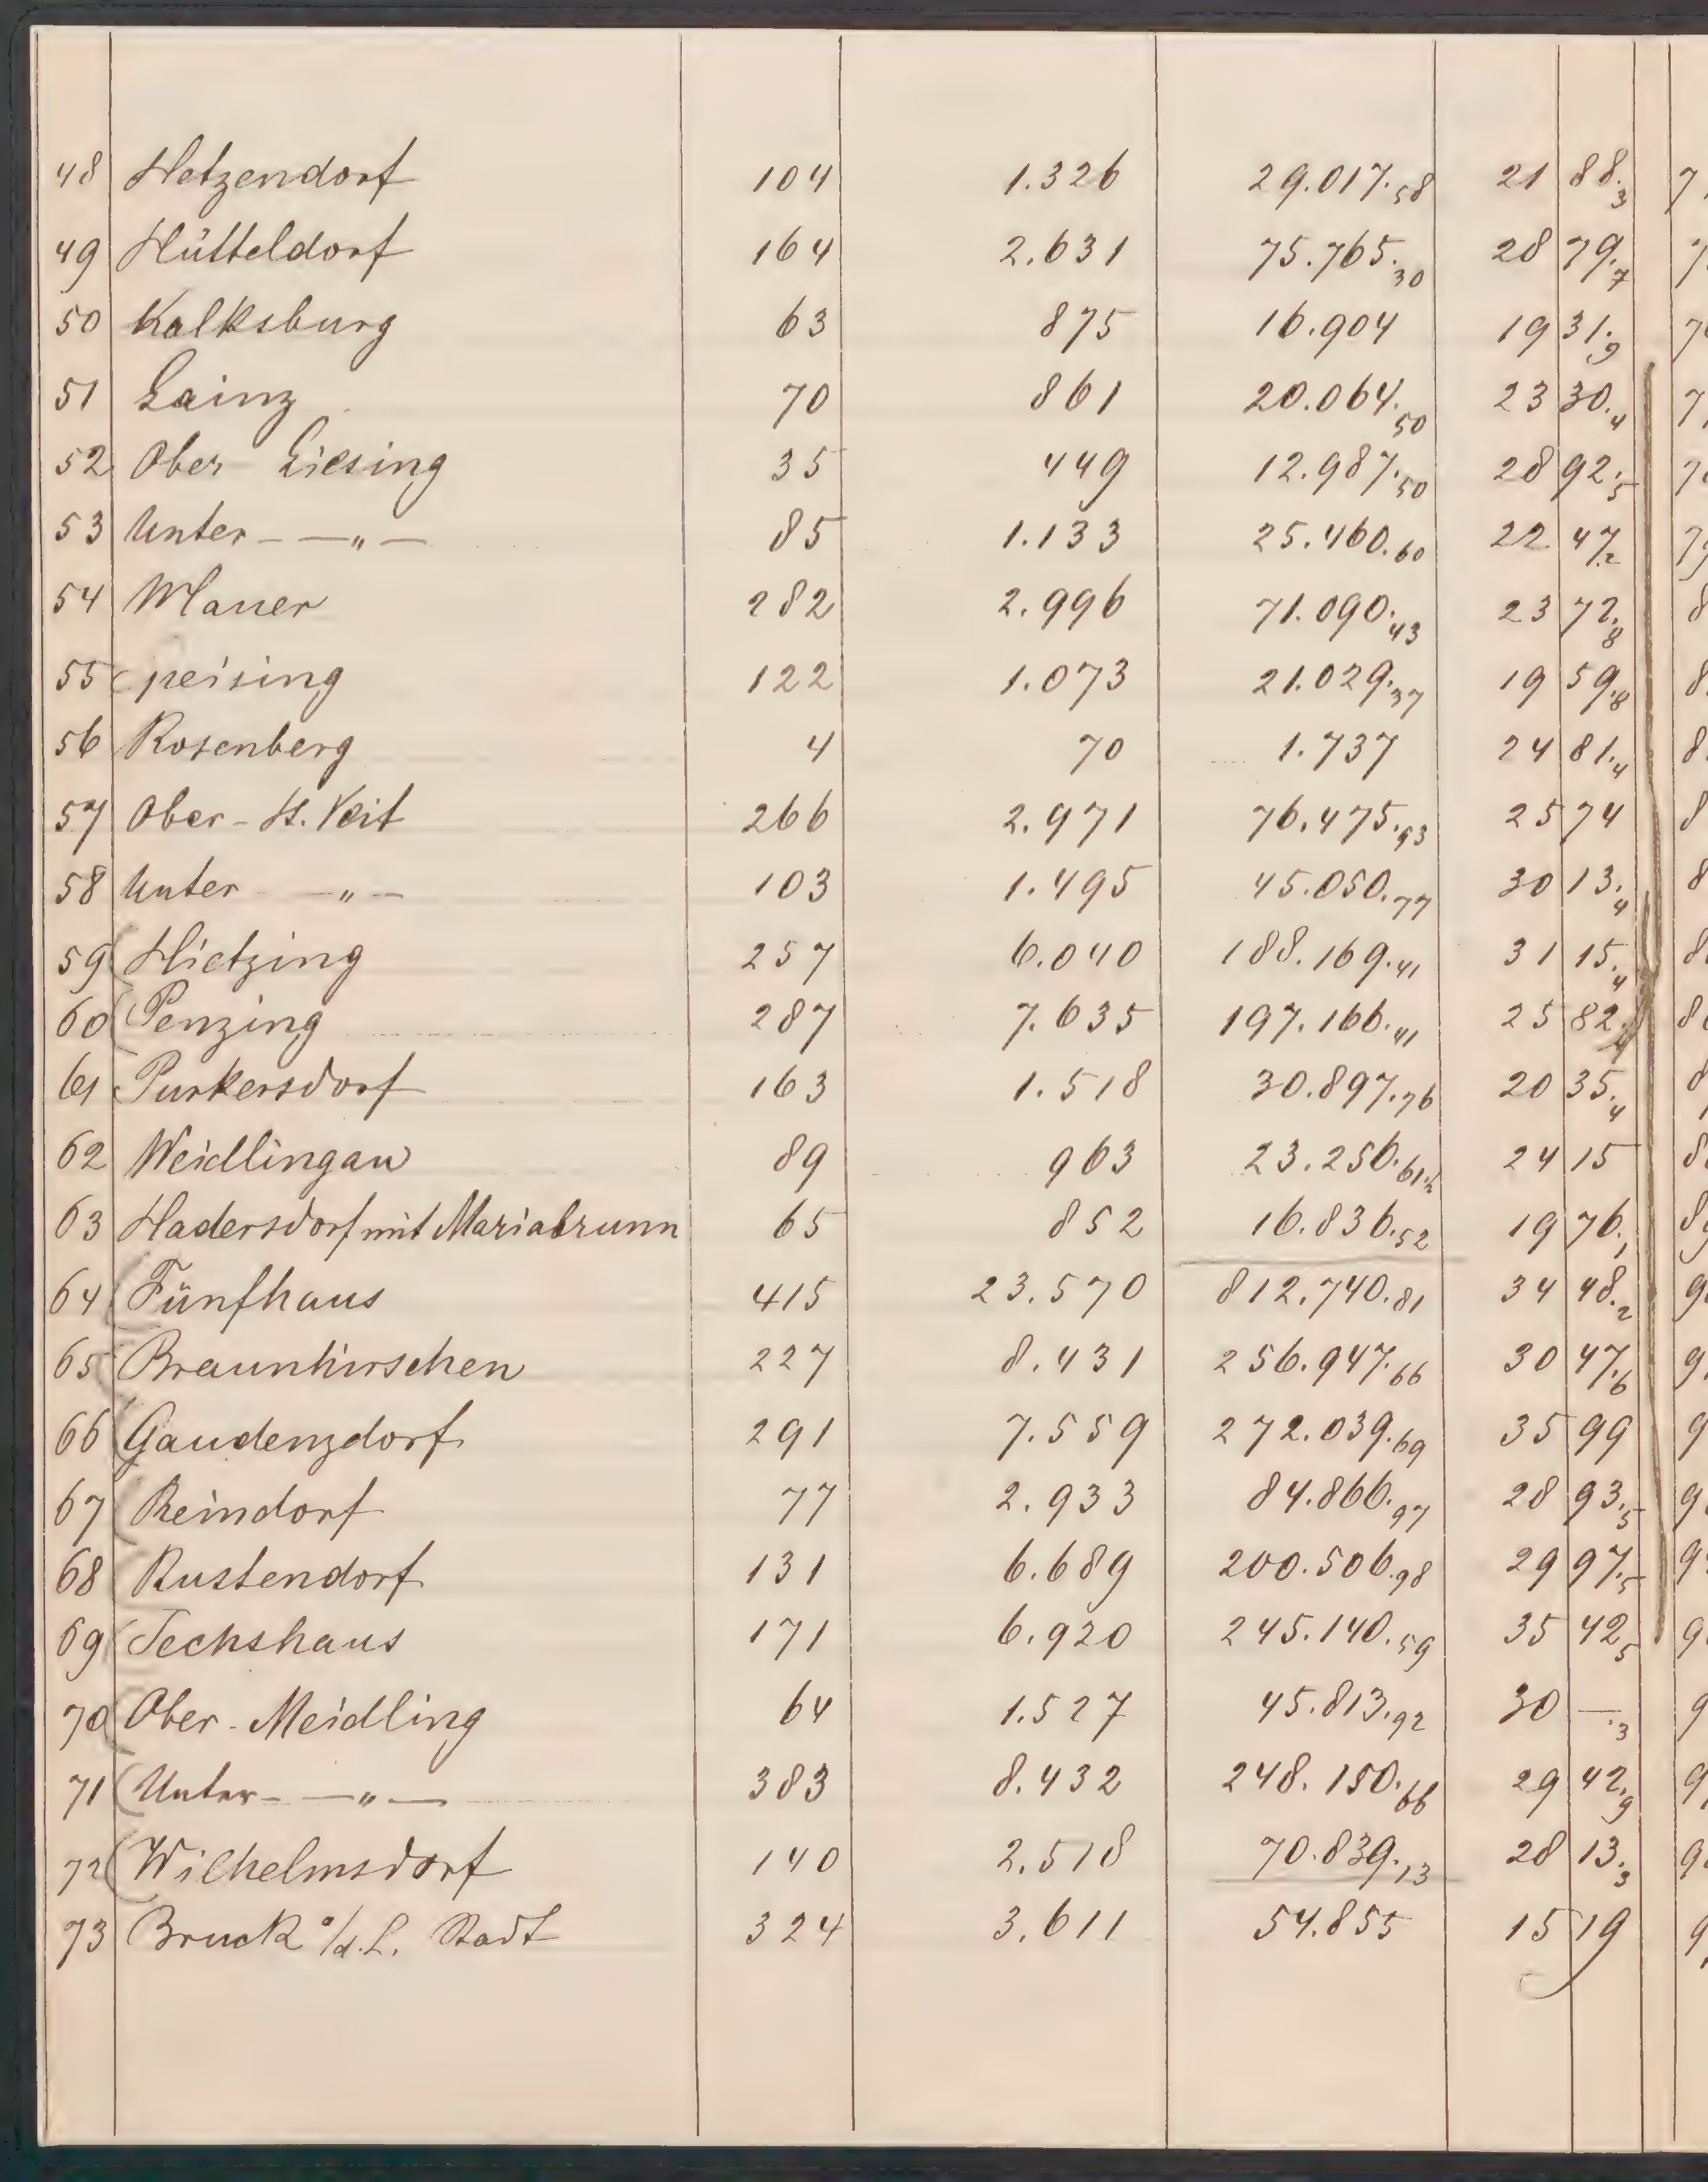 48 Hetzendorf 104 1.326 29.017.58 21 88.3 7
49 Hütteldorf 164 2.631 75.765.30 28 79.7
50 Kalksburg 63 875 16.904 19 31.9 7
51 Lainz 70 861 20.064.50 23 30.4 7
52 Ober Liesing 35 449 12.987.50 28 92.5 7
53 Unter - —„— 85 1.133 25.460.60 22 47.2 7
54 Mauer 282 2.996 71.090.43 23 72.8 8
55 Speising 122 1.073 21.029.37 19 59.8 8
56 Rosenberg 4 70 1.737 24 81.4 8
57 Ober-St. Veit 266 2.971 76.475.93 25 74 8
58 Unter —„— 103 1.495 45.050.77 30 13.4 8
59 Hietzing 257 6.040 188.169.41 31 15.4 8
60 Penzing 287 7.635 197.166.41 25 82. 8
61 Purkersdorf 163 1.518 30.897.76 20 35.4 8
62 Weidlingau 89 963 23.256.61½ 24 15 8
63 Hadersdorf mit Mariabrunn 65 852 16.836.52 19 76.1 8
64 Fünfhaus 415 23.570 812.740.81 34 48.2 9
65 Braunhirschen 227 8.431 256.947.66 30 47.6 9
66 Gaudenzdorf 291 7.559 272.039.69 35 99 9
67 Reindorf 77 2.933 84.866.97 28 93.5 9
68 Rustendorf 131 6.689 200.506.98 29 97.5 9
69 Sechshaus 171 6.920 245.140.59 35 42.5 9
70 Ober-Meidling 64 1.527 45.813.92 30 —.3 9
71 Unter- —„— 383 8.432 248.150.66 29 42.9 9
72 Wilhelmsdorf 140 2.518 70.839.13 28 13.3 9
73 Bruck a/d.L. Stadt 324 3.611 54.855 15 19 9